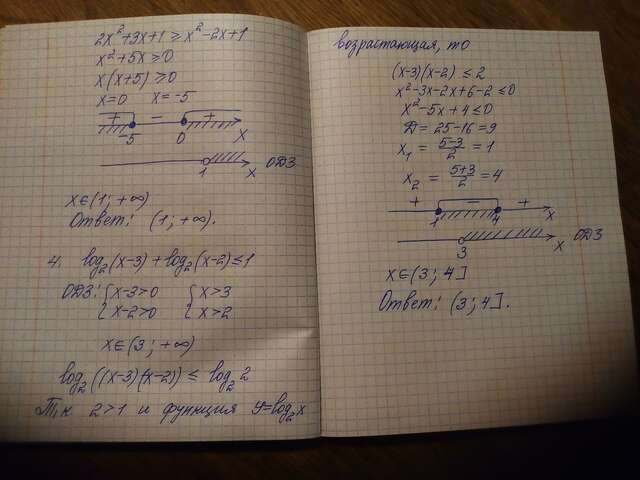 2x²+3x+1 ≥ x²-2x+1
x²+5x ≥ 0
x(x+5) ≥ 0
x=0 x=-5
+ - +
-5 0 x
1 x ОДЗ
x∈(1; +∞)
Ответ: (1; +∞).
4. log₂(x-3) + log₂(x-2) ≤ 1
ОДЗ: { x-3>0 { x>3
x-2>0 x>2
x∈(3; +∞)
log₂((x-3)(x-2)) ≤ log₂ 2
Т.к 2>1 и функция y=log₂x
возрастающая, то
(x-3)(x-2) ≤ 2
x²-3x-2x+6-2 ≤ 0
x²-5x+4 ≤ 0
Д = 25-16 = 9
x₁ = (5-3)/2 = 1
x₂ = (5+3)/2 = 4
+ - +
1 4 x
3 x ОДЗ
x∈(3; 4]
Ответ: (3; 4].